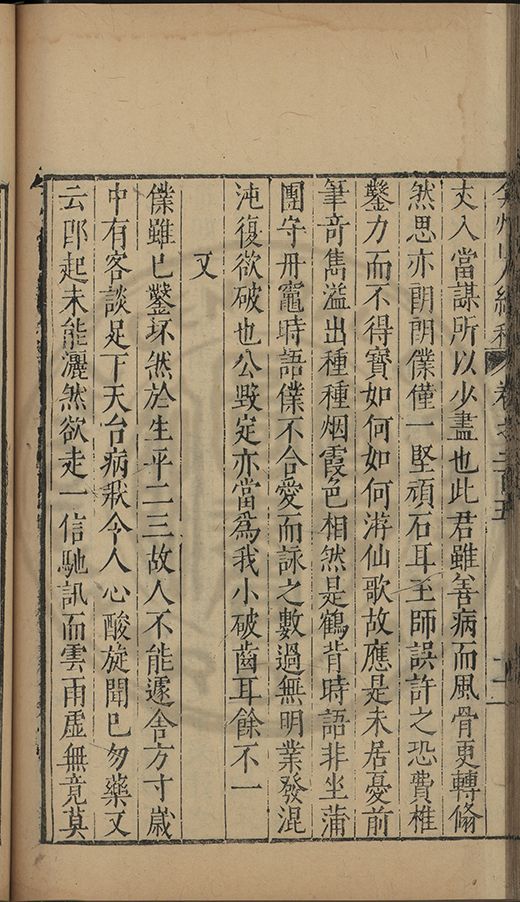 弇州山人續稿 卷之二百五
丈入當謀所以少盡也此君雖善病而風骨更轉脩
然思亦朗朗僕僅一堅頑石耳王師誤許之恐費椎
鑿力而不得寶如何如何游仙歌故應是未居憂前
筆奇雋溢出種種烟霞色相然是鶴背時語非坐蒲
團守丹竈時語僕不合愛而詠之數過無明業發混
沌復欲破也公毀定亦當爲我小破齒耳餘不一
又
僕雖已鑿坏然於生平二三故人不能遽舍方寸歲
中有客談足下天台病狀令人心酸旋聞已勿藥又
云即起未能灑然欲走一信馳訊而雲雨虛無竟莫